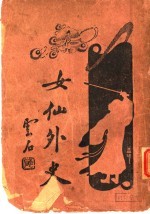 女仙外史
雲石